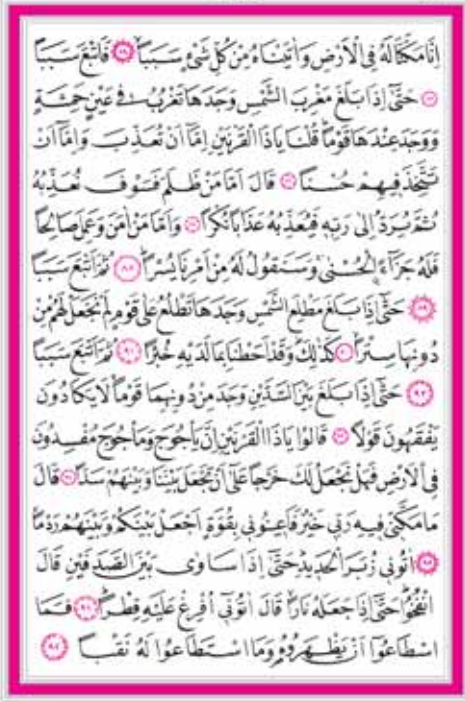 اِنَّا مَكَّنَّا لَهُ فِي الْاَرْضِ وَاٰتَيْنَاهُ مِنْ كُلِّ شَيْءٍ سَبَبًاۙ ﴿٨٤﴾ فَاَتْبَعَ سَبَبًا
﴿٨٥﴾ حَتّٰٓى اِذَا بَلَغَ مَغْرِبَ الشَّمْسِ وَجَدَهَا تَغْرُبُ ف۪ي عَيْنٍ حَمِئَةٍ
وَوَجَدَ عِنْدَهَا قَوْمًاۜ قُلْنَا يَا ذَا الْقَرْنَيْنِ اِمَّٓا اَنْ تُعَذِّبَ وَاِمَّٓا اَنْ
تَتَّخِذَ ف۪يهِمْ حُسْنًا ﴿٨٦﴾ قَالَ اَمَّا مَنْ ظَلَمَ فَسَوْفَ نُعَذِّبُهُ
ثُمَّ يُرَدُّ اِلٰى رَبِّه۪ فَيُعَذِّبُهُ عَذَابًا نُكْرًا ﴿٨٧﴾ وَاَمَّا مَنْ اٰمَنَ وَعَمِلَ صَالِحًا
فَلَهُ جَزَٓاءًۨ الْحُسْنٰىۚ وَسَنَقُولُ لَهُ مِنْ اَمْرِنَا يُسْرًاۜ ﴿٨٨﴾ ثُمَّ اَتْبَعَ سَبَبًا
﴿٨٩﴾ حَتّٰٓى اِذَا بَلَغَ مَطْلِعَ الشَّمْسِ وَجَدَهَا تَطْلُعُ عَلٰى قَوْمٍ لَمْ نَجْعَلْ لَهُمْ مِنْ
دُونِهَا سِتْرًاۙ ﴿٩٠﴾ كَذٰلِكَۜ وَقَدْ اَحَطْنَا بِمَا لَدَيْهِ خُبْرًا ﴿٩١﴾ ثُمَّ اَتْبَعَ سَبَبًا
﴿٩٢﴾ حَتّٰٓى اِذَا بَلَغَ بَيْنَ السَّدَّيْنِ وَجَدَ مِنْ دُونِهِمَا قَوْمًاۙ لَا يَكَادُونَ
يَفْقَهُونَ قَوْلًا ﴿٩٣﴾ قَالُوا يَا ذَا الْقَرْنَيْنِ اِنَّ يَأْجُوجَ وَمَأْجُوجَ مُفْسِدُونَ
فِي الْاَرْضِ فَهَلْ نَجْعَلُ لَكَ خَرْجًا عَلٰٓى اَنْ تَجْعَلَ بَيْنَنَا وَبَيْنَهُمْ سَدًّا ﴿٩٤﴾ قَالَ
مَا مَكَّنّ۪ي ف۪يهِ رَبّ۪ي خَيْرٌ فَاَع۪ينُون۪ي بِقُوَّةٍ اَجْعَلْ بَيْنَكُمْ وَبَيْنَهُمْ رَدْمًاۙ
﴿٩٥﴾ اٰتُون۪ي زُبَرَ الْحَد۪يدِۜ حَتّٰٓى اِذَا سَاوٰى بَيْنَ الصَّدَفَيْنِ قَالَ
انْفُخُواۜ حَتّٰٓى اِذَا جَعَلَهُ نَارًاۙ قَالَ اٰتُون۪ٓي اُفْرِغْ عَلَيْهِ قِطْرًاۜ ﴿٩٦﴾ فَمَا
اسْطَاعُٓوا اَنْ يَظْهَرُوهُ وَمَا اسْتَطَاعُوا لَهُ نَقْبًا ﴿٩٧﴾